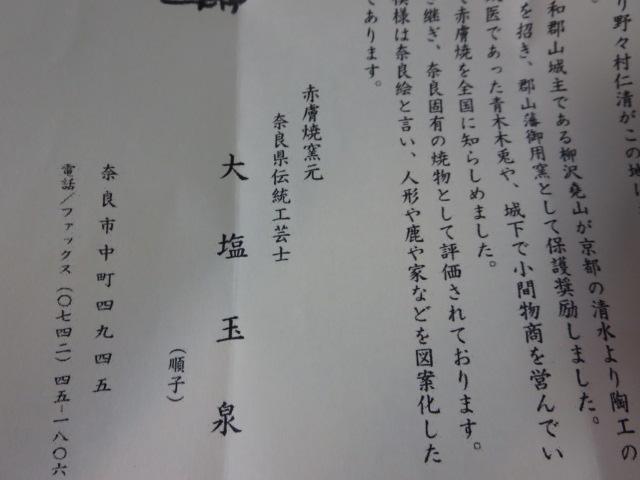 り野々村仁清がこの地
和郡山城主である柳沢堯山が京都の清水より陶工の
を招き、郡山藩御用窯として保護奨励しました。
医であった青木木兎や、城下で小間物商を営んでい
赤膚焼を全国に知らしめました。
継ぎ、奈良固有の焼物として評価されております。
模様は奈良絵と言い、人形や鹿や家などを図案化した
であります。
赤膚焼窯元
奈良県伝統工芸士
大塩玉泉
(順子)
奈良市中町四九四五
電話/ファックス(〇七四二)四五-一八〇六